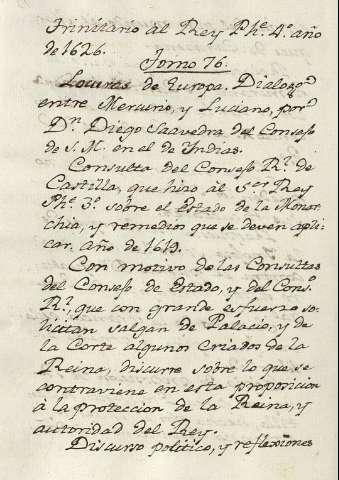 Trinitario al Rey Phe. 4.º año
de 1626.
Tomo 76.
Locuras de Europa. Dialogo
entre Mercurio, y Luciano, por
Dn. Diego Saavedra del Consejo
de S. M. en el de Indias.
Consulta del Consejo Rl. de
Castilla, que hizo al Sor. Rey
Phe. 3.º sobre el Estado de la Monar
chia, y remedios que se deven apli-
car. año de 1619.
Con motivo de las Consultas
del Consejo de Estado, y del Conso.
Rl., que con grande esfuerzo so-
licitan salgan de Palacio, y de
la Corte algunos criados de la
Reina, discurre sobre lo que se
contraviene en esta proposicion
à la proteccion de la Reina, y
autoridad del Rey.
Discurso politico, y reflexiones